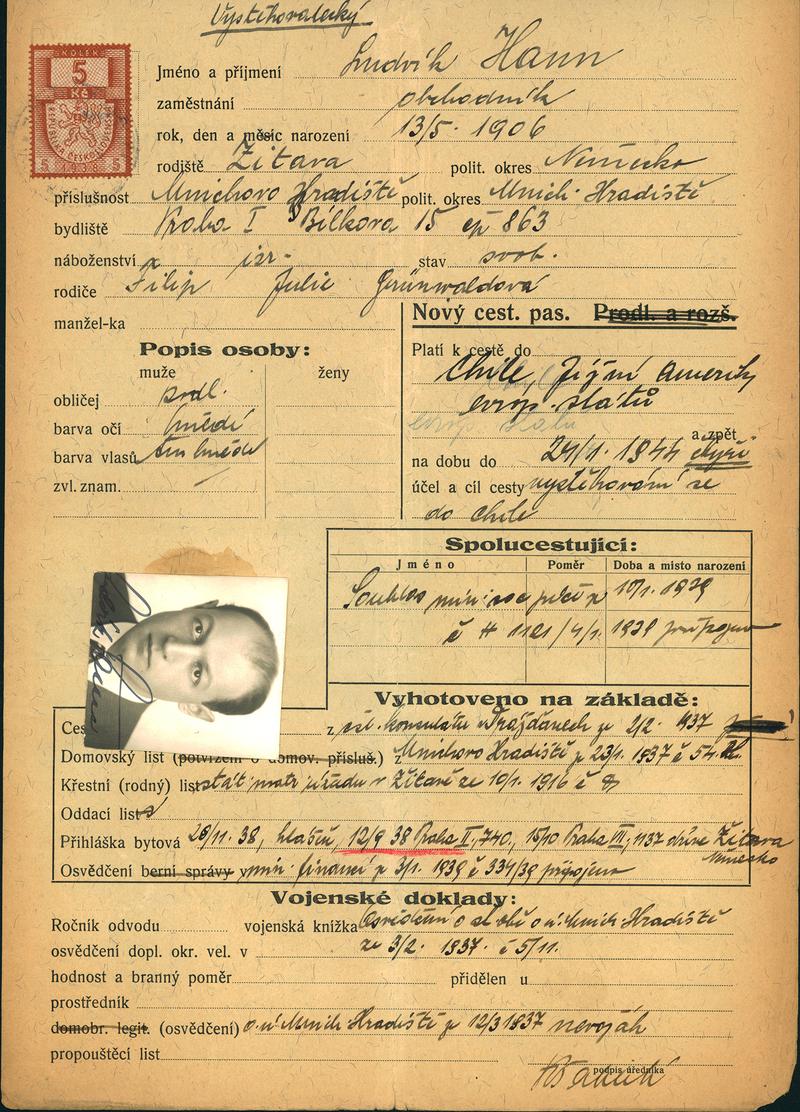 Vystěhovalecký
KOLEK
5
Kč
REPUBLIKA ČESKOSLOVENSKÁ
5 1938 5
Jméno a příjmení Ludvík Hann
zaměstnání obchodník
rok, den a měsíc narození 13/5. 1906
rodiště Žitava polit. okres Německo
příslušnost Mnichovo Hradiště polit. okres Mnich. Hradiště
bydliště Praha I Bílkova 15 čp 863
náboženství isr. stav svob.
rodiče Filip Julie Grünwaldová
manžel-ka
Nový cest. pas. Prodl. a rozš.
Popis osoby:
muže ženy
obličej podl.
barva očí hnědé
barva vlasů tm hnědé
zvl. znam.
Platí k cestě do
Chile, Jižní Ameriky
evrop. států
evrop. států
a zpět
na dobu do 24/1. 1944
účel a cíl cesty vystěhování se
do Chile
Spolucestující:
Jméno Poměr Doba a místo narození
Souhlas min. soc péče z 10/1. 1939
č 1121/4/1. 1939 připojen
Vyhotoveno na základě:
Ces z konsulátu v Drážďanech z 2/2. 1937
Domovský list (potvrzení o domov. přísluš.) z Mnichovo Hradiště z 23/1. 1937 č 54
Křestní (rodný) list stát matr úřadu v Žitavě ze 10/1. 1916 č 8
Oddací list
Přihláška bytová 26/11. 38, hlášen, 12/9 38 Praha II, 740, 15/10 Praha VII, 1137 dříve Žitava
Německo
Osvědčení berní správy min. financí z 3/1. 1939 č 334/39 připojeno
Vojenské doklady:
Ročník odvodu vojenská knížka Osvědčení o o. ú. Mnich Hradiště
osvědčení dopl. okr. vel. v ze 3/2. 1937. č 5/11.
hodnost a branný poměr přidělen u
prostředník
domobr. legit. (osvědčení) o. ú. Mnich. Hradiště z 12/3 1937 nevoják
propouštěcí list
podpis úředníka